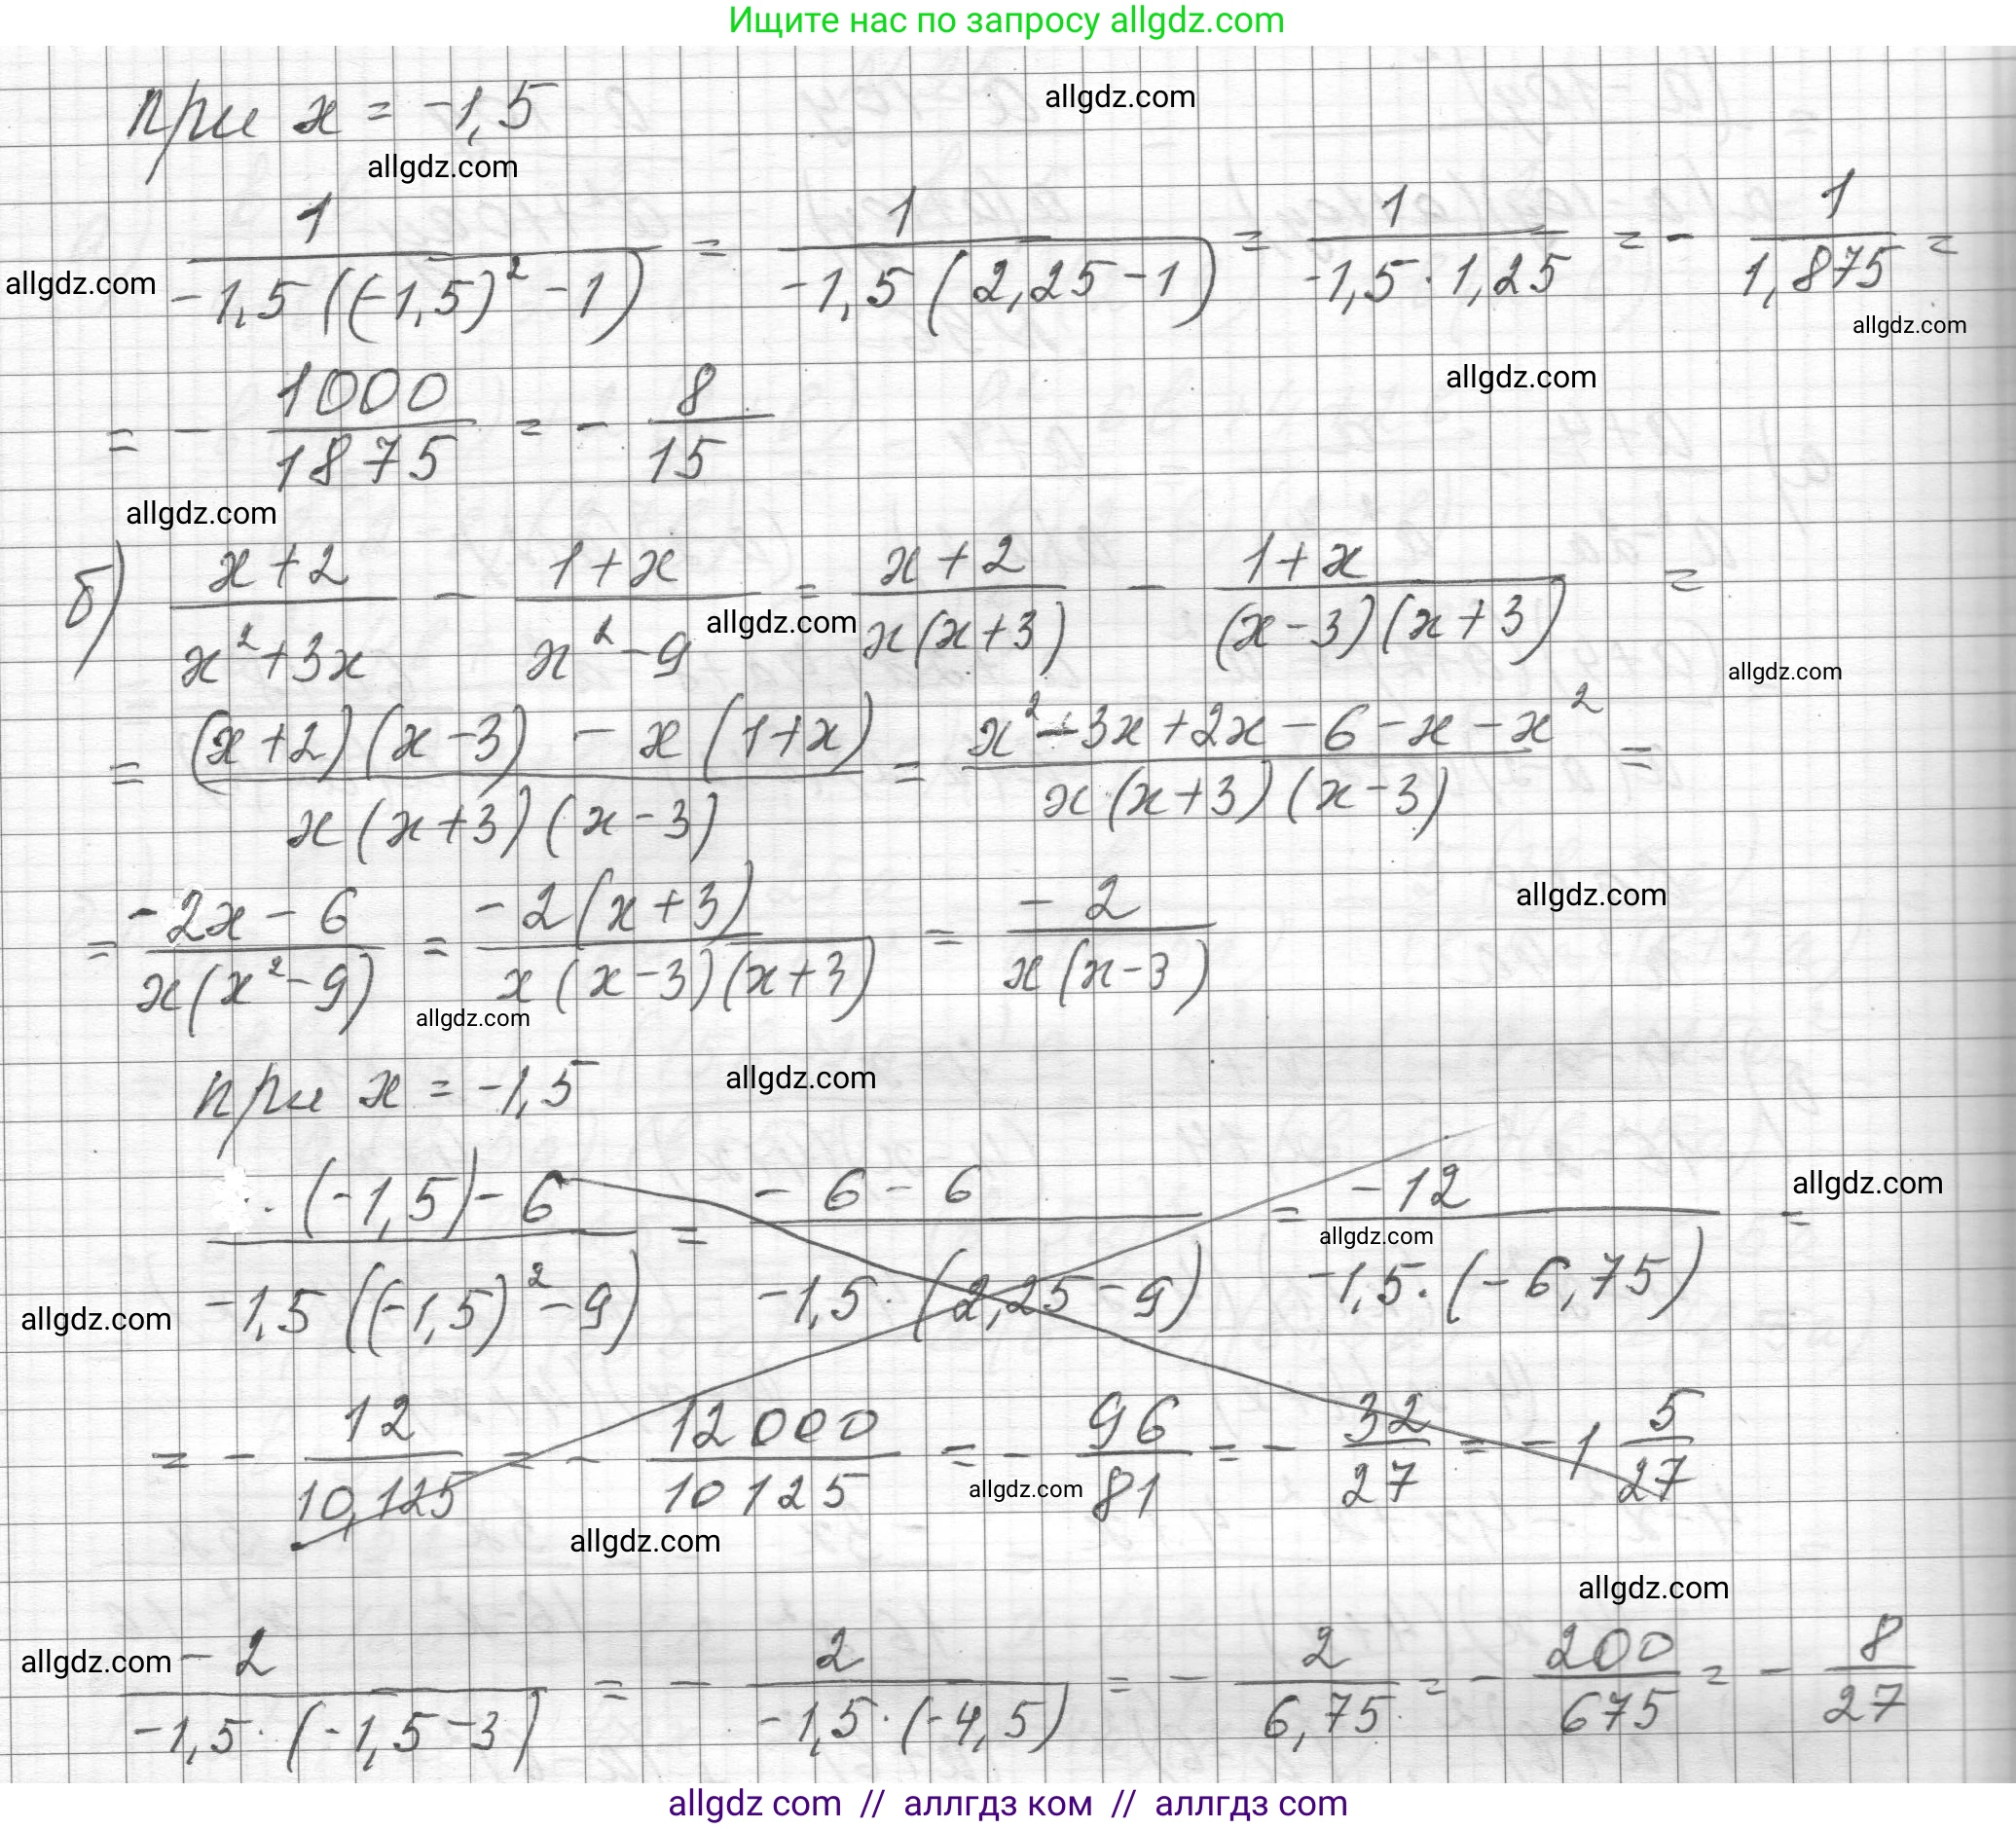 Ищите нас по запросу allgdz.com
при x = -1,5
allgdz.com
allgdz.com
1/(-1,5((-1,5)² - 1)) = 1/(-1,5(2,25 - 1)) = 1/(-1,5 · 1,25) = - 1/1,875 =
allgdz.com
allgdz.com
allgdz.com
= - 1000/1875 = - 8/15
allgdz.com
б) (x + 2)/(x² + 3x) - (1 + x)/(x² - 9) = (x + 2)/(x(x + 3)) - (1 + x)/((x - 3)(x + 3)) =
allgdz.com
allgdz.com
= ((x + 2)(x - 3) - x(1 + x))/(x(x + 3)(x - 3)) = (x² - 3x + 2x - 6 - x - x²)/(x(x + 3)(x - 3)) =
allgdz.com
= (-2x - 6)/(x(x² - 9)) = (-2(x + 3))/(x(x - 3)(x + 3)) = (-2)/(x(x - 3))
allgdz.com
при x = -1,5
allgdz.com
· (-1,5) - 6/(-1,5((-1,5)² - 9)) = (-6 - 6)/(-1,5 · (2,25 - 9)) = (-12)/(-1,5 · (-6,75)) =
allgdz.com
allgdz.com
allgdz.com
= - 12/10,125 = - 12000/10125 = - 96/81 = - 32/27 = - 1 5/27
allgdz.com
allgdz.com
allgdz.com
allgdz.com
-2/(-1,5 · (-1,5 - 3)) = - 2/(-1,5 · (-4,5)) = - 2/6,75 = - 200/675 = - 8/27
allgdz com // аллгдз ком // аллгдз com